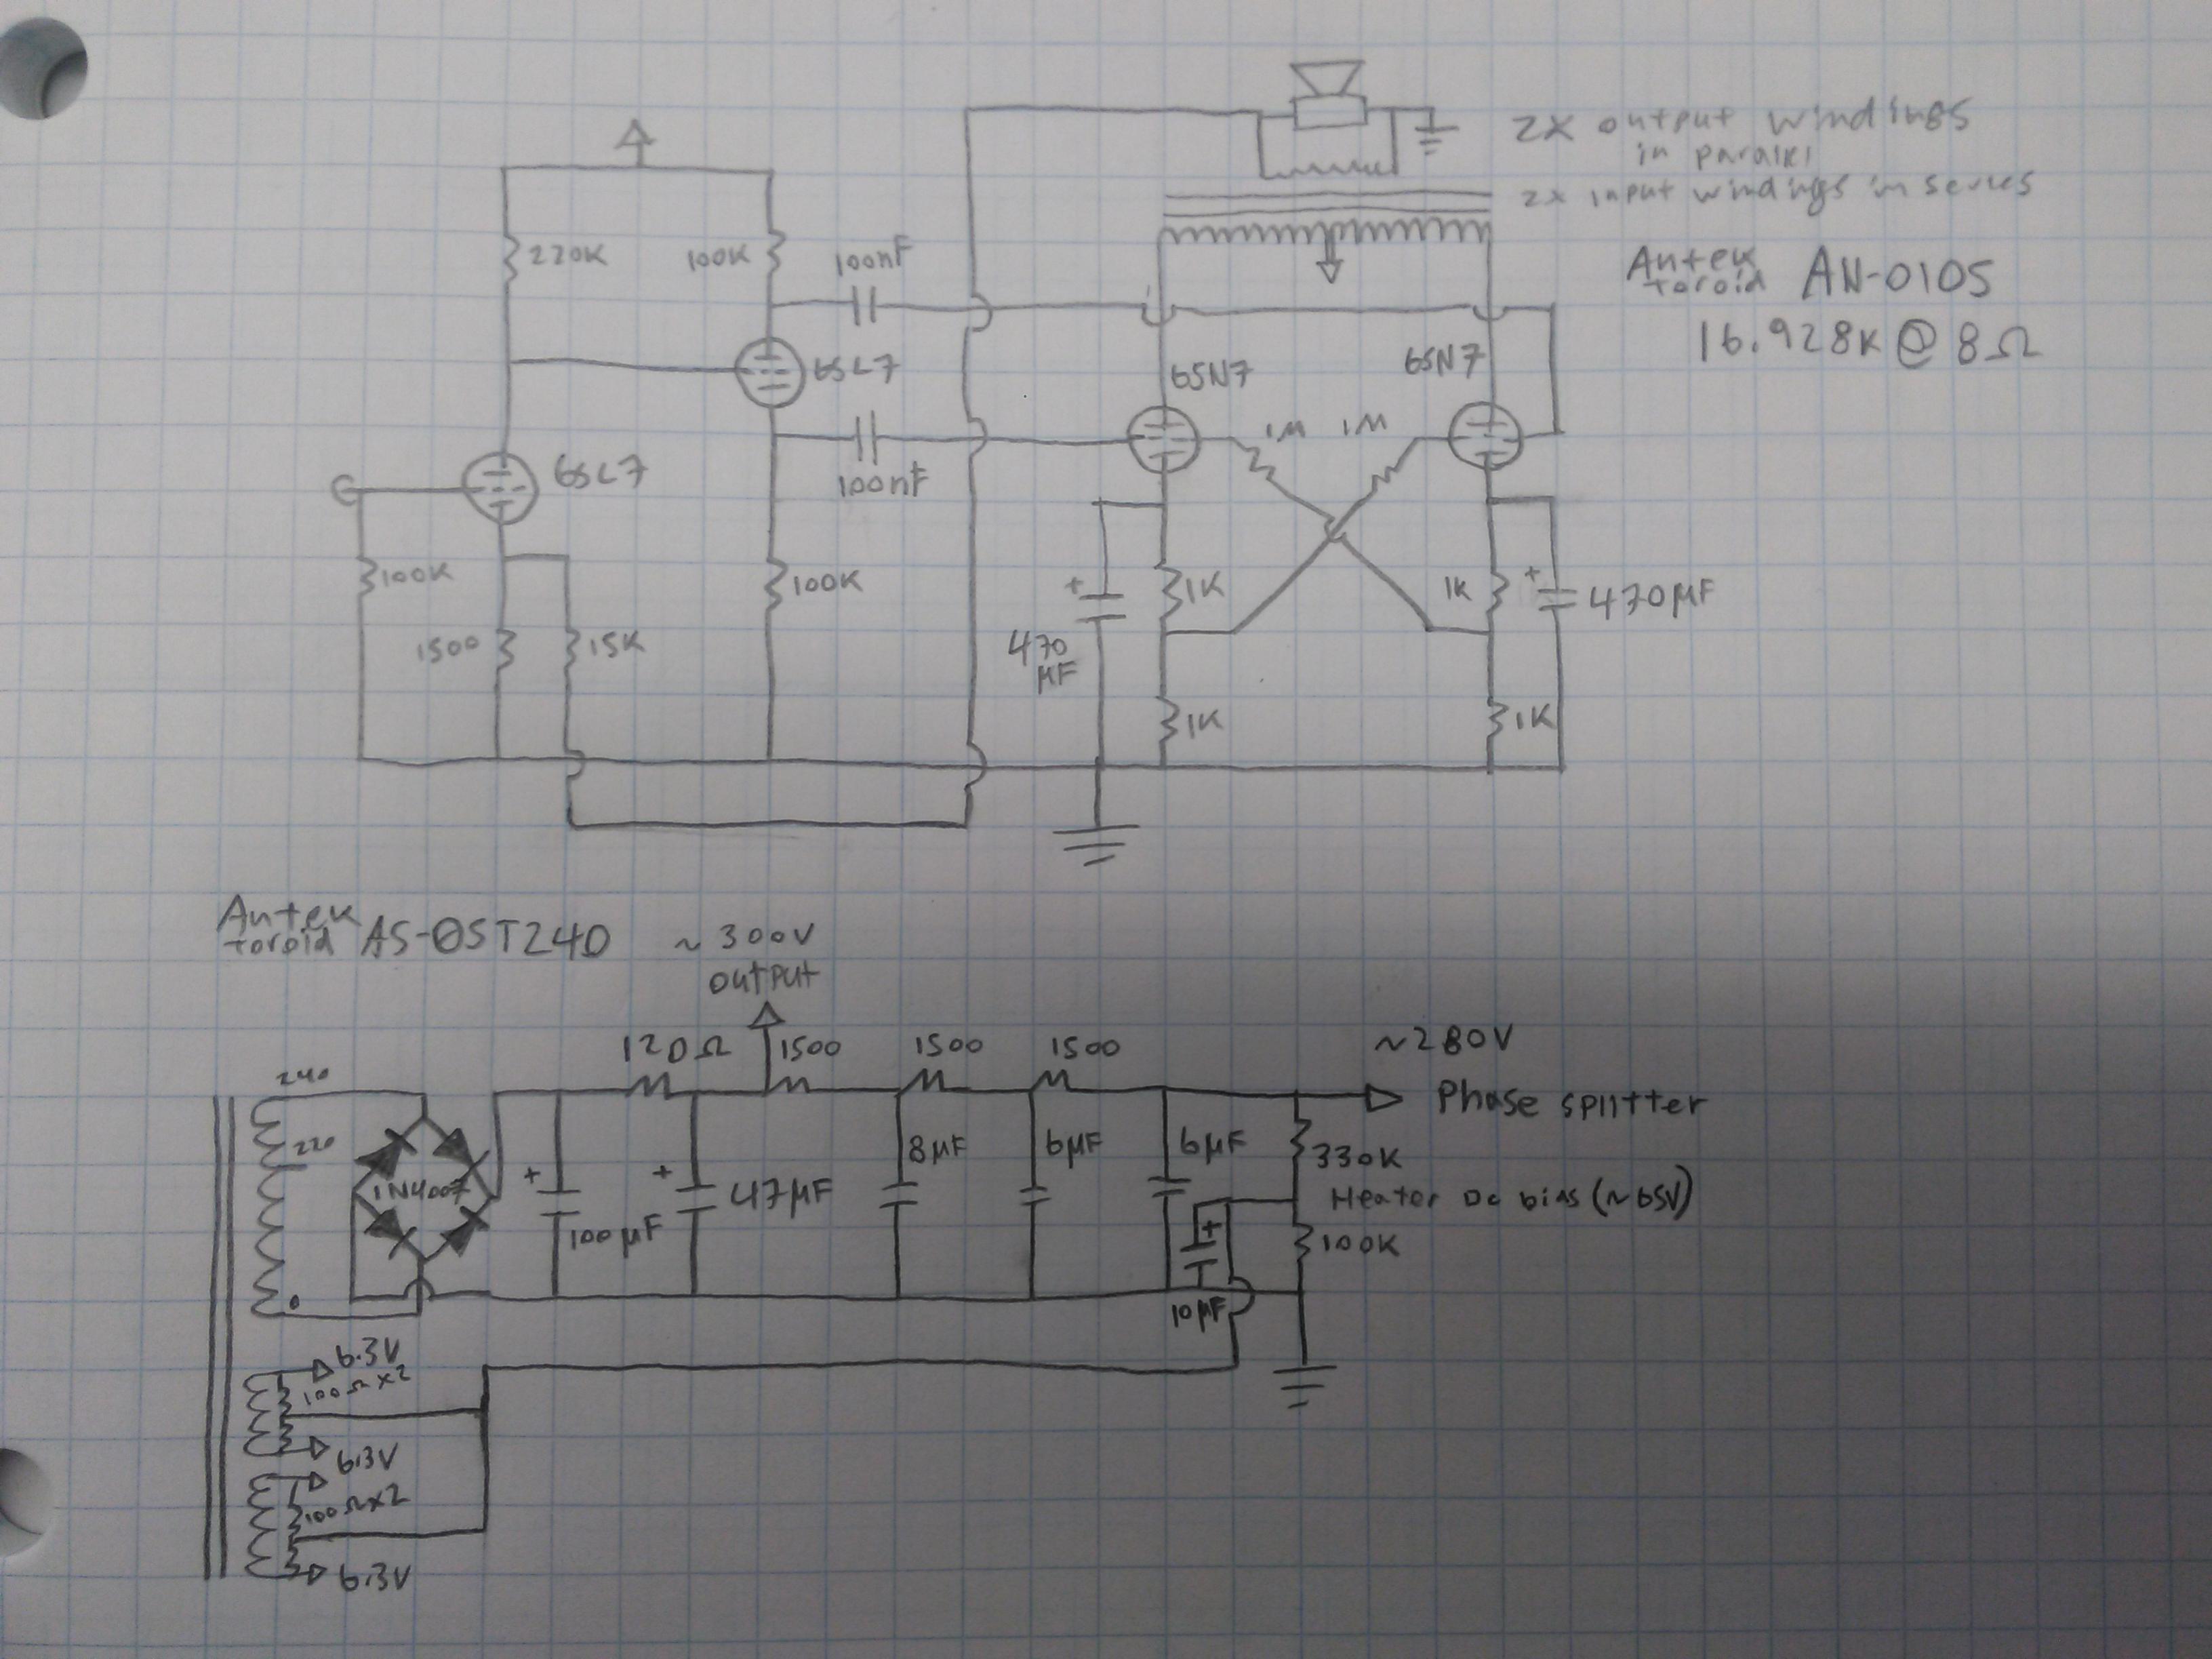 2x output windings
in paralel
2x input windings in series
Antek
toroid AN-0105
16.928K @ 8Ω
220K
100K
100nF
6SL7
6SN7
6SN7
1M
1M
6SL7
100nF
100K
100K
1K
1K
+
+
470µF
1500
15K
470
µF
1K
1K
Antek
toroid AS-05T240
~300V
output
120Ω
1500
1500
1500
~280V
Phase splitter
240
220
0
1N4007
+
100µF
+
47µF
8µF
6µF
6µF
330K
Heater DC bias (~65V)
+
100K
10µF
6.3V
100Ωx2
6.3V
100Ωx2
6.3V